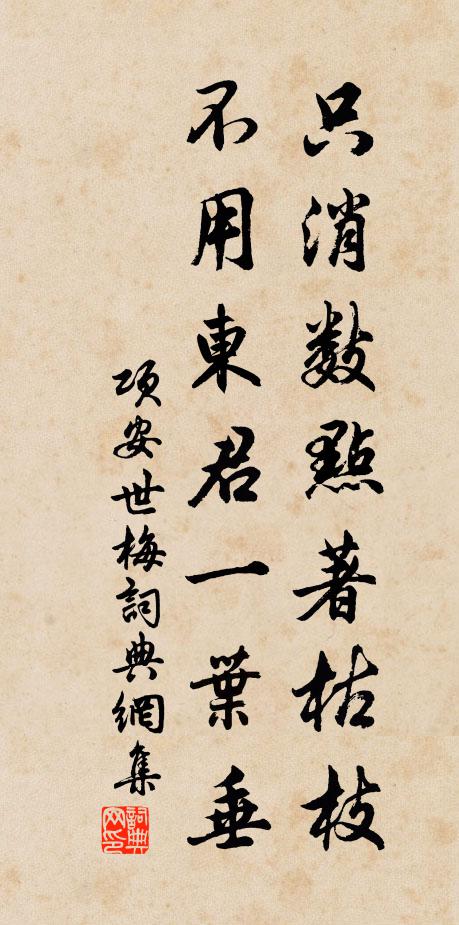 只消數點著枯枝
不用東君一葉垂
項安世梅詞典網集
詞典網印